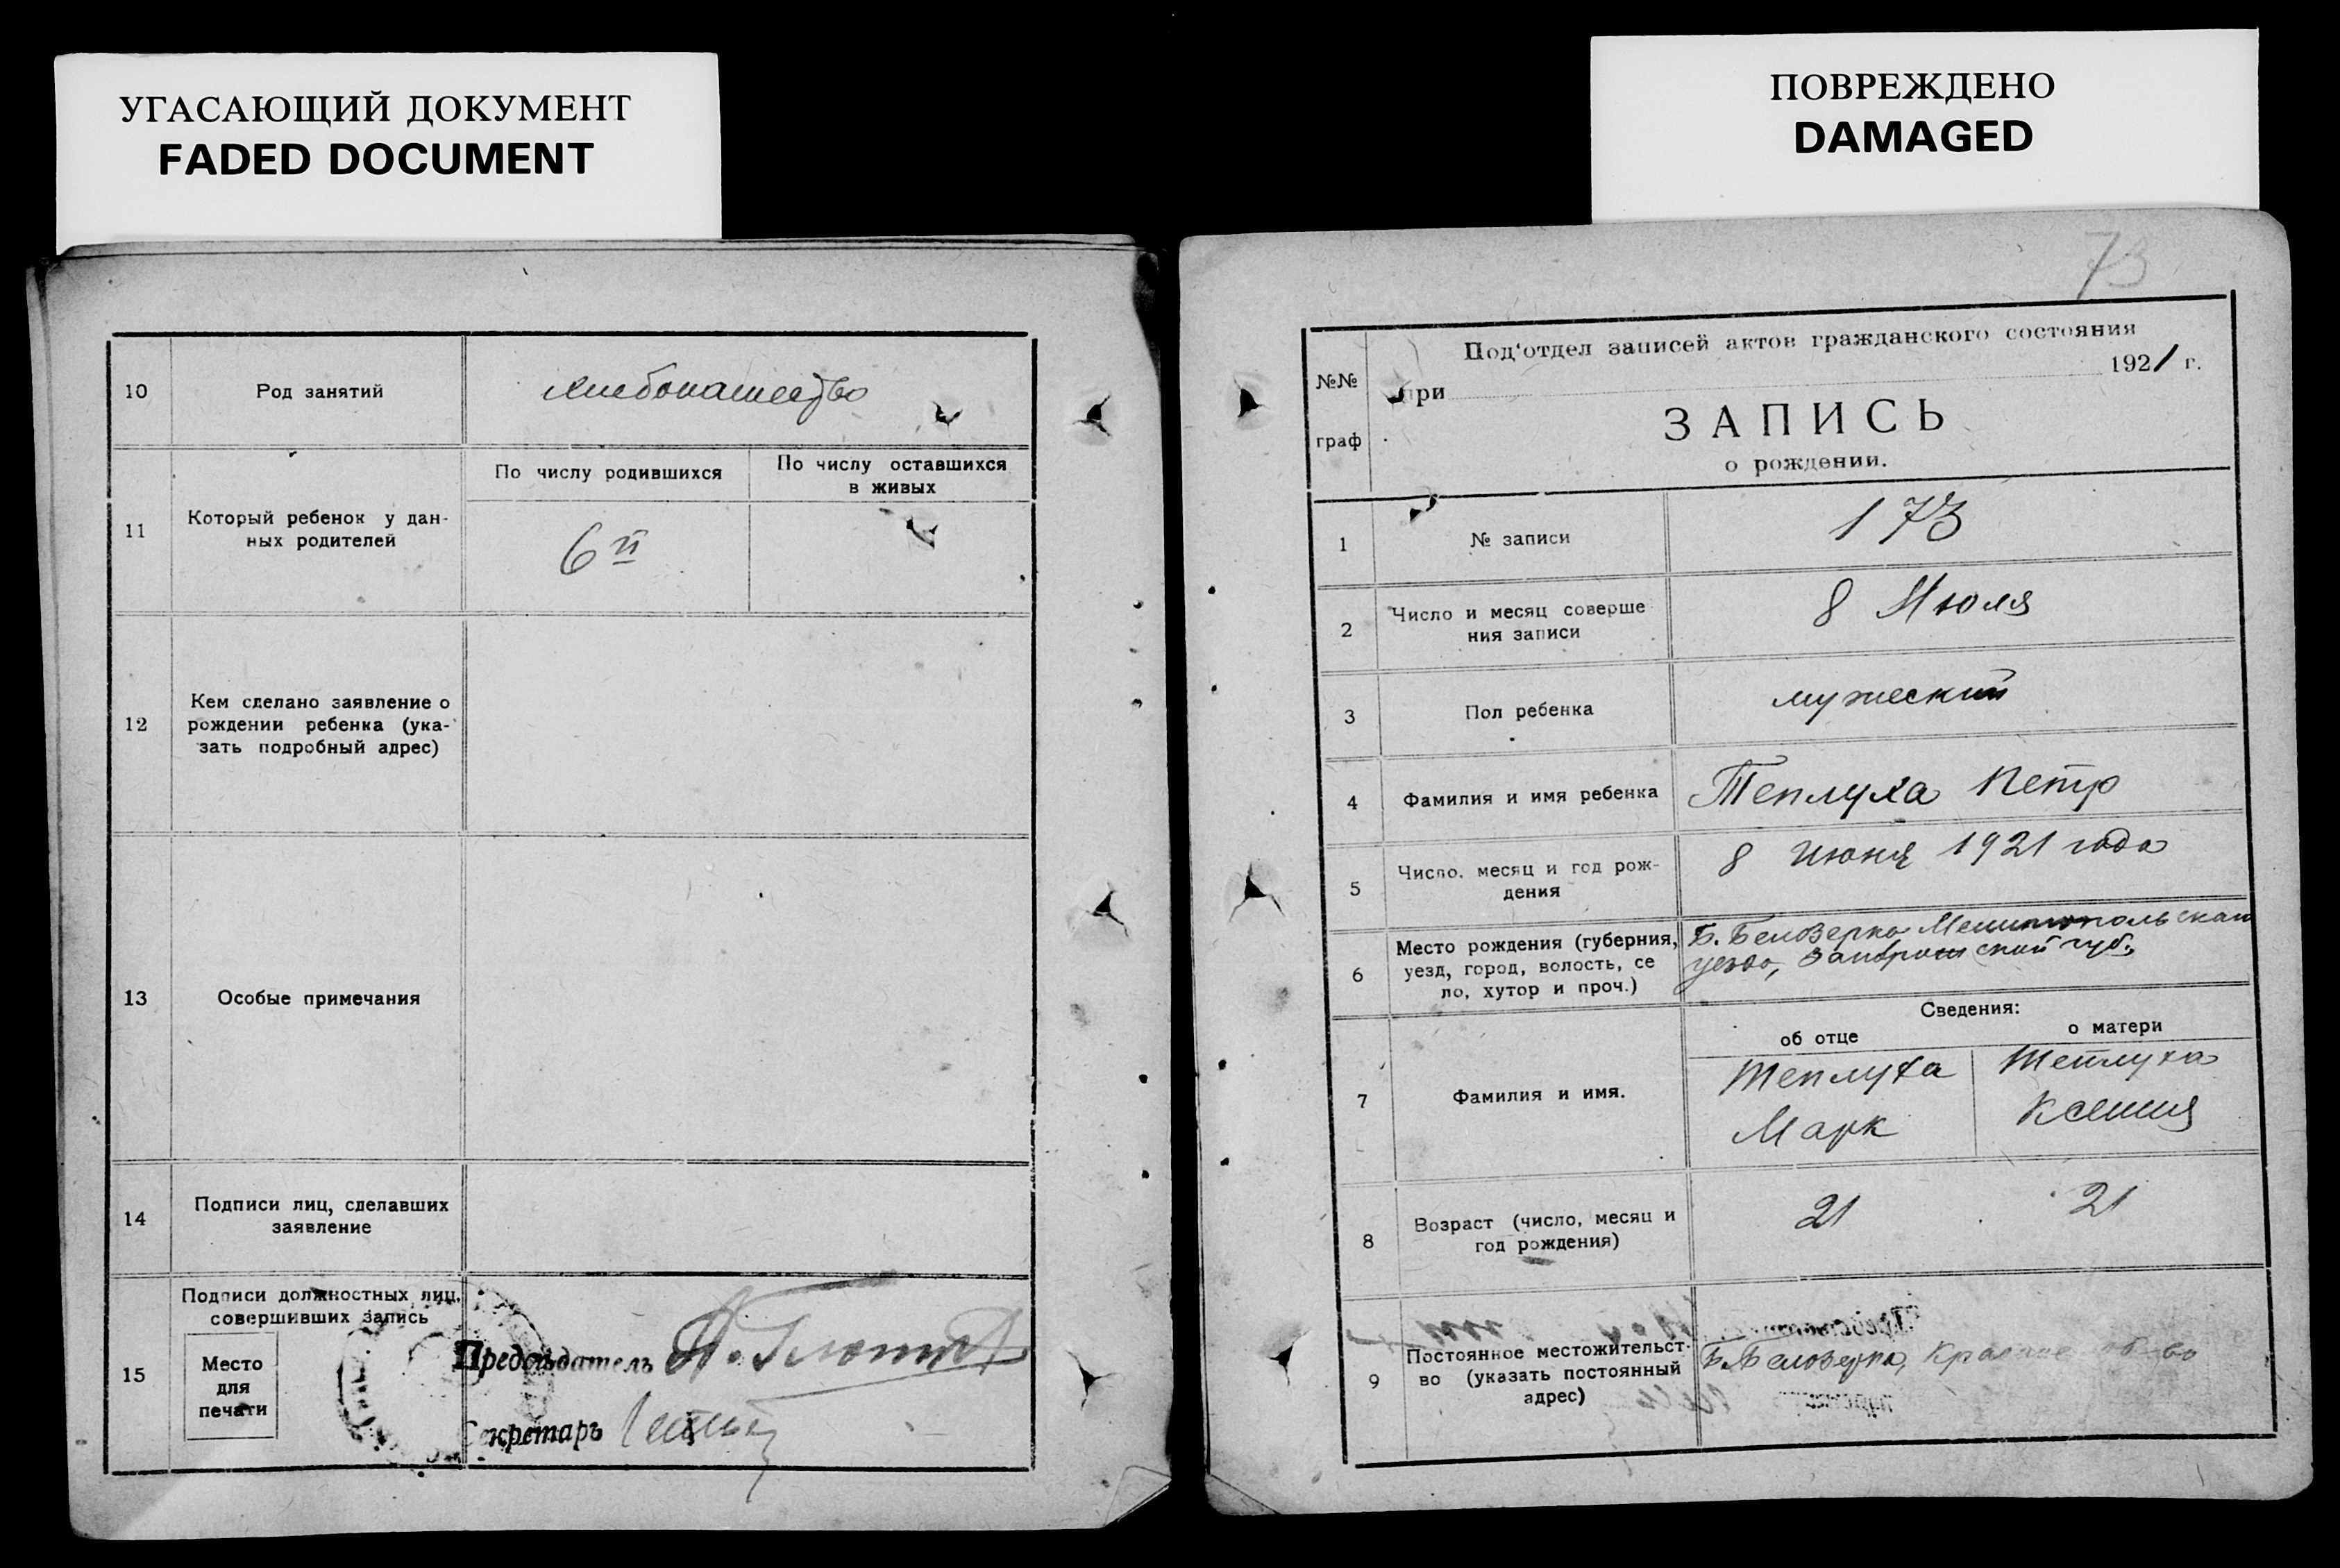 УГАСАЮЩИЙ ДОКУМЕНТ
FADED DOCUMENT
10
Род занятий
хлебопашество
11
Который ребенок у дан-
ных родителей
По числу родившихся
По числу оставшихся
в живых
6й
12
Кем сделано заявление о
рождении ребенка (ука-
зать подробный адрес)
13
Особые примечания
14
Подписи лиц, сделавших
заявление
15
Подписи должностных лиц,
совершивших запись
Место
для
печати
Председатель
Секретарь
ПОВРЕЖДЕНО
DAMAGED
73
№№
граф
Под'отдел записей актов гражданского состояния
при 1921 г.
ЗАПИСЬ
о рождении.
1
№ записи
173
2
Число и месяц соверше
ния записи
8 Июля
3
Пол ребенка
мужеский
4
Фамилия и имя ребенка
Теплуха Петр
5
Число, месяц и год рож-
дения
8 Июня 1921 года
6
Место рождения (губерния,
уезд, город, волость, се
ло, хутор и проч.)
Б. Белозерка Мелитопольскаго
уезда, губ.
Сведения:
об отце
о матери
7
Фамилия и имя.
Теплуха
Марк
Теплуха
Ксения
8
Возраст (число, месяц и
год рождения)
21
21
9
Постоянное местожительст-
во (указать постоянный
адрес)
Б. Белозерка, об-во